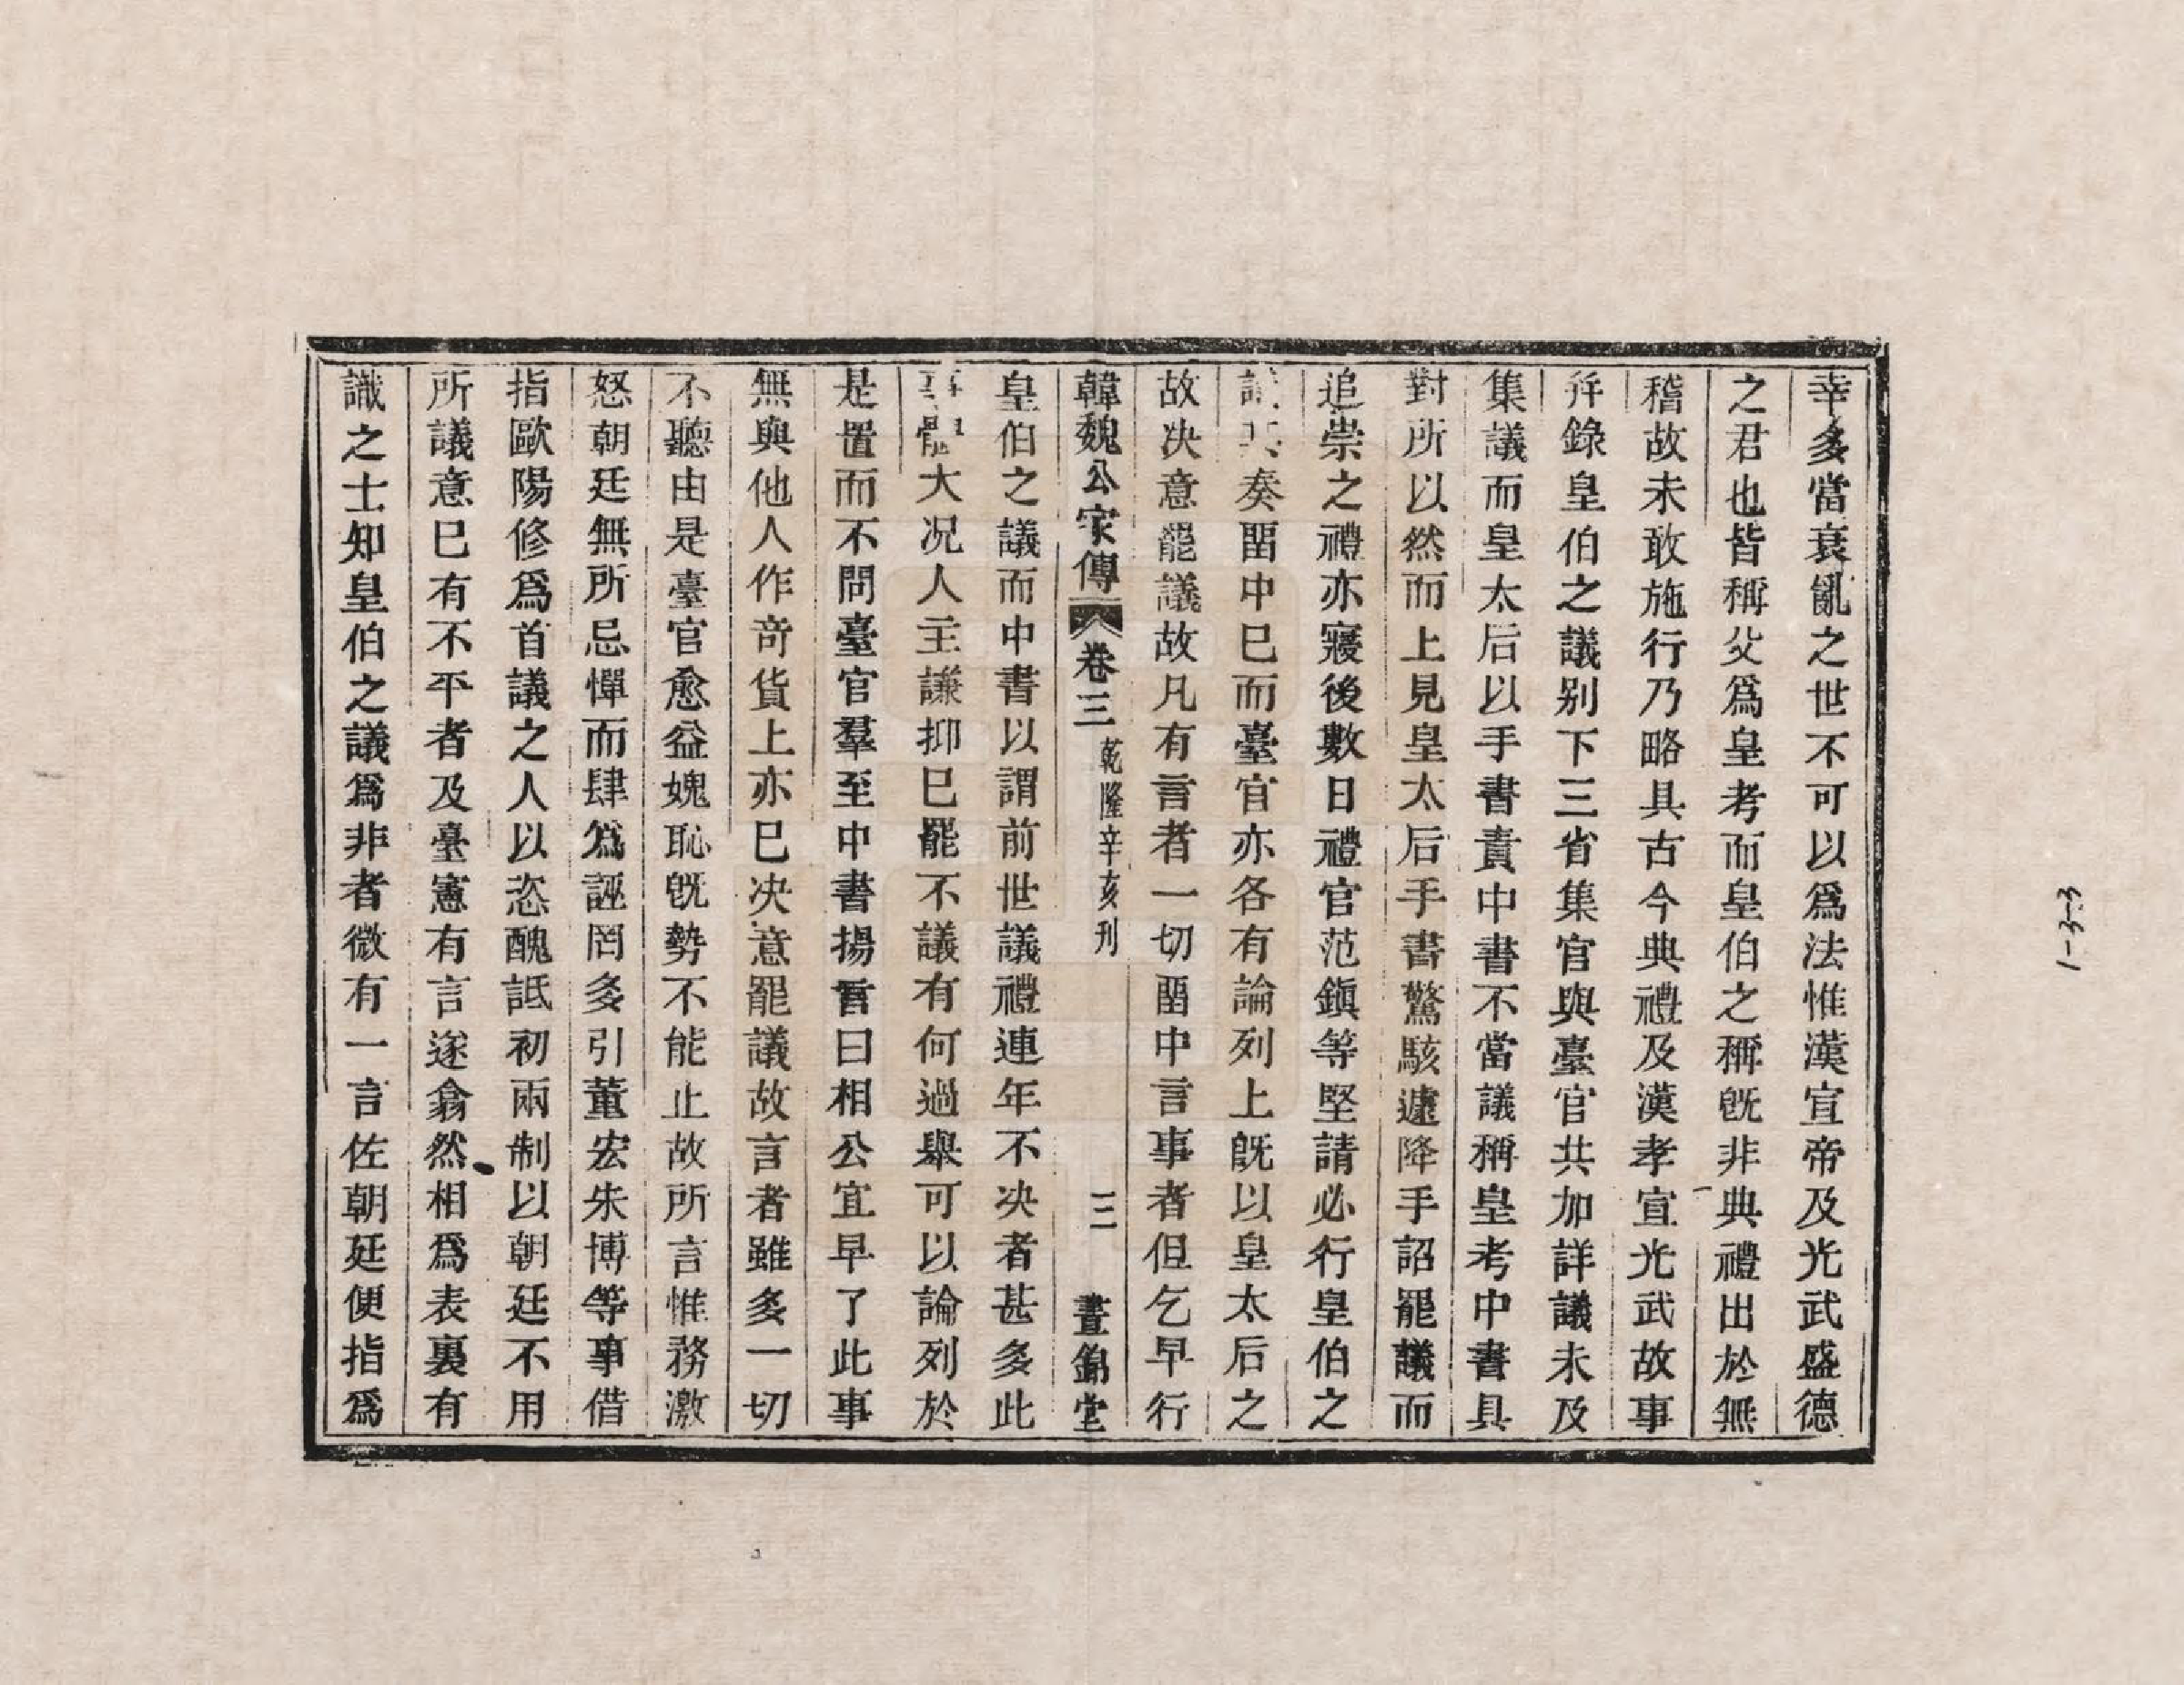 幸多當衰亂之世不可以爲法惟漢宣帝及光武盛德
之君也皆稱父爲皇考而皇伯之稱旣非典禮出於無
稽故未敢施行乃略具古今典禮及漢孝宣光武故事
并錄皇伯之議别下三省集官與臺官共加詳議未及
集議而皇太后以手書責中書不當議稱皇考中書具
對所以然而上見皇太后手書驚駭遽降手詔罷議而
追崇之禮亦寢後數日禮官范鎭等堅請必行皇伯之
議其奏畱中巳而臺官亦各有論列上旣以皇太后之
故决意罷議故凡有言者一切畱中言事者但乞早行
韓魏公家傳 卷三 乾隆辛亥刋 三 晝錦堂
皇伯之議而中書以謂前世議禮連年不决者甚多此
事體大况人主謙抑巳罷不議有何過舉可以論列於
是置而不問臺官羣至中書揚言曰相公宜早了此事
無與他人作奇貨上亦巳决意罷議故言者雖多一切
不聽由是臺官愈益媿恥旣勢不能止故所言惟務激
怒朝廷無所忌憚而肆爲誣罔多引董宏朱博等事借
指歐陽修爲首議之人以恣醜詆初兩制以朝廷不用
所議意巳有不平者及臺憲有言遂翕然相爲表裏有
識之士知皇伯之議爲非者微有一言佐朝廷便指爲
1-3-3